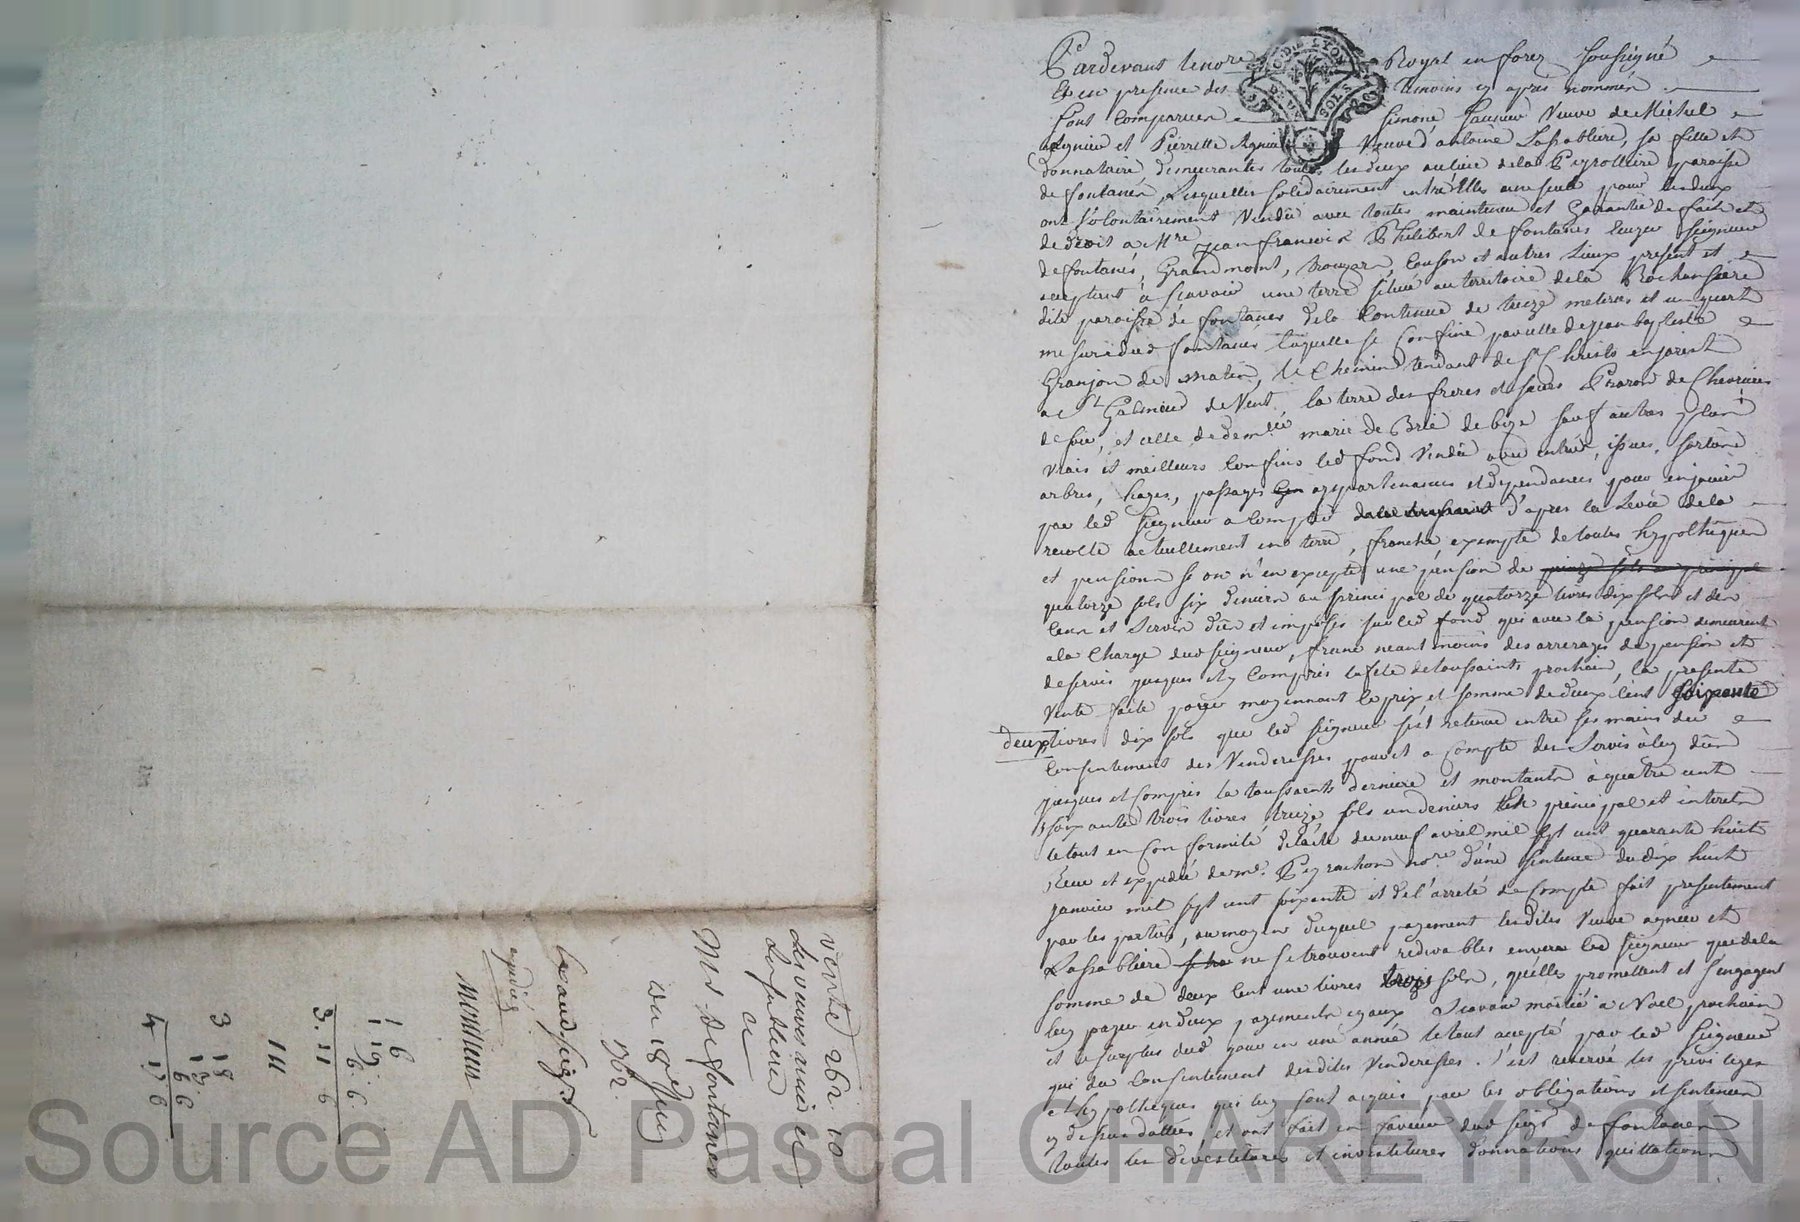 Pardevant lenore Royal en forez soussigné
Et en presence des temoins cy apres nommés
sont comparues simone veuve de Michel
agnieu et Pierrette Agnieu veuve d'antoine Lassabliere, sa fille et
donnataire, demeurantes toutes les deux au lieu dela Peyrolliere paroisse
de fontanes, Lesquelles solidairement entre Elles une seule pour les deux
ont volontairement Vendû avec toutes maintenue et Garantie de fait et
de droit à Mre Jean francois Philibert de fontanes seigneur
de fontanes, Grandmont, Couson et autres Lieux present et
acceptant à scavoir une terre située au territoire dela Rochansiere
dite paroisse de fontanes dela Contenue de treize meterees et un quart
mesure dud fontanes laquelle se Confine par celle de jean baptiste
Granjon de matin, le chemin tendant de St Christo en jarest
a St Galmier de Vent, la terre des freres et sœurs Pharon de Chevrieres
de soir, et celle de demlle marie de Brie de bize sauf autres plus
vrais et meilleurs Confins led fond Vendû avec entrées, issues, sorties
arbres, hayes, passages appartenances et dependances pour en jouir
par led seigneur a Compter d'apres la Levée dela
recolte actuellement en terre, franche exempte de toutes hypotheques
et pensions se on n'en excepte une pension de
quatorze sols six deniers au principal de quatorze livres dix sols et des
Cens et Servis dûs et imposés sur led fond qui avec la pension demeurent
ala Charge dud seigneur, franc neantmoins des arrerages de pension et
de servis jusques et y Compris la fete de toussaints prochain, la presente
Vente faite pour et moyennant le prix et somme de deux Cent soixante
deux livres dix sols que led seigneur s'est retenue entre ses mains du
Consentement des Venderesses a Compte des Servis à luy dûs
jusques et Compris la toussaints derniere et montants à quatre cent
soixante trois livres treize sols un deniers principal et interets
le tout en Conformité de l'acte du neuf avril mil sept cent quarante huit
Reçu et expedié de me. Peyrachon nore d'une sentence du dix huit
janvier mil sept cent soixante et de l'arreté de Compte fait presentement
par les parties, au moyen duquel payement lesdites Veuve agnieu et
Lassabliere ne se trouvent redevables envers led seigneur que dela
somme de deux Cent une livres trois sols, qu'elles promettent et s'engagent
luy payer en deux payements egaux Scavoir moitié à Noel prochain
et le surplus dud jour en une année le tout accepté par led seigneur
qui du Consentement desdites Venderesses s'est reservé les privileges
et hypotheques qui luy sont acquis par les obligations et sentences
cy dessus dattées, et ont fait en faveur dud seigr de fontanes
toutes les devestitures et investitures donnations quittations
vente 262. 10
des veuves
Lassabliere
a
Mr. de fontanes
du 18e Juin
1762.
expedié
Monsieur
16
1 19 6 6
3. 11 6
111
3 18 6
4 17 6
Source AD Pascal CHAREYRON